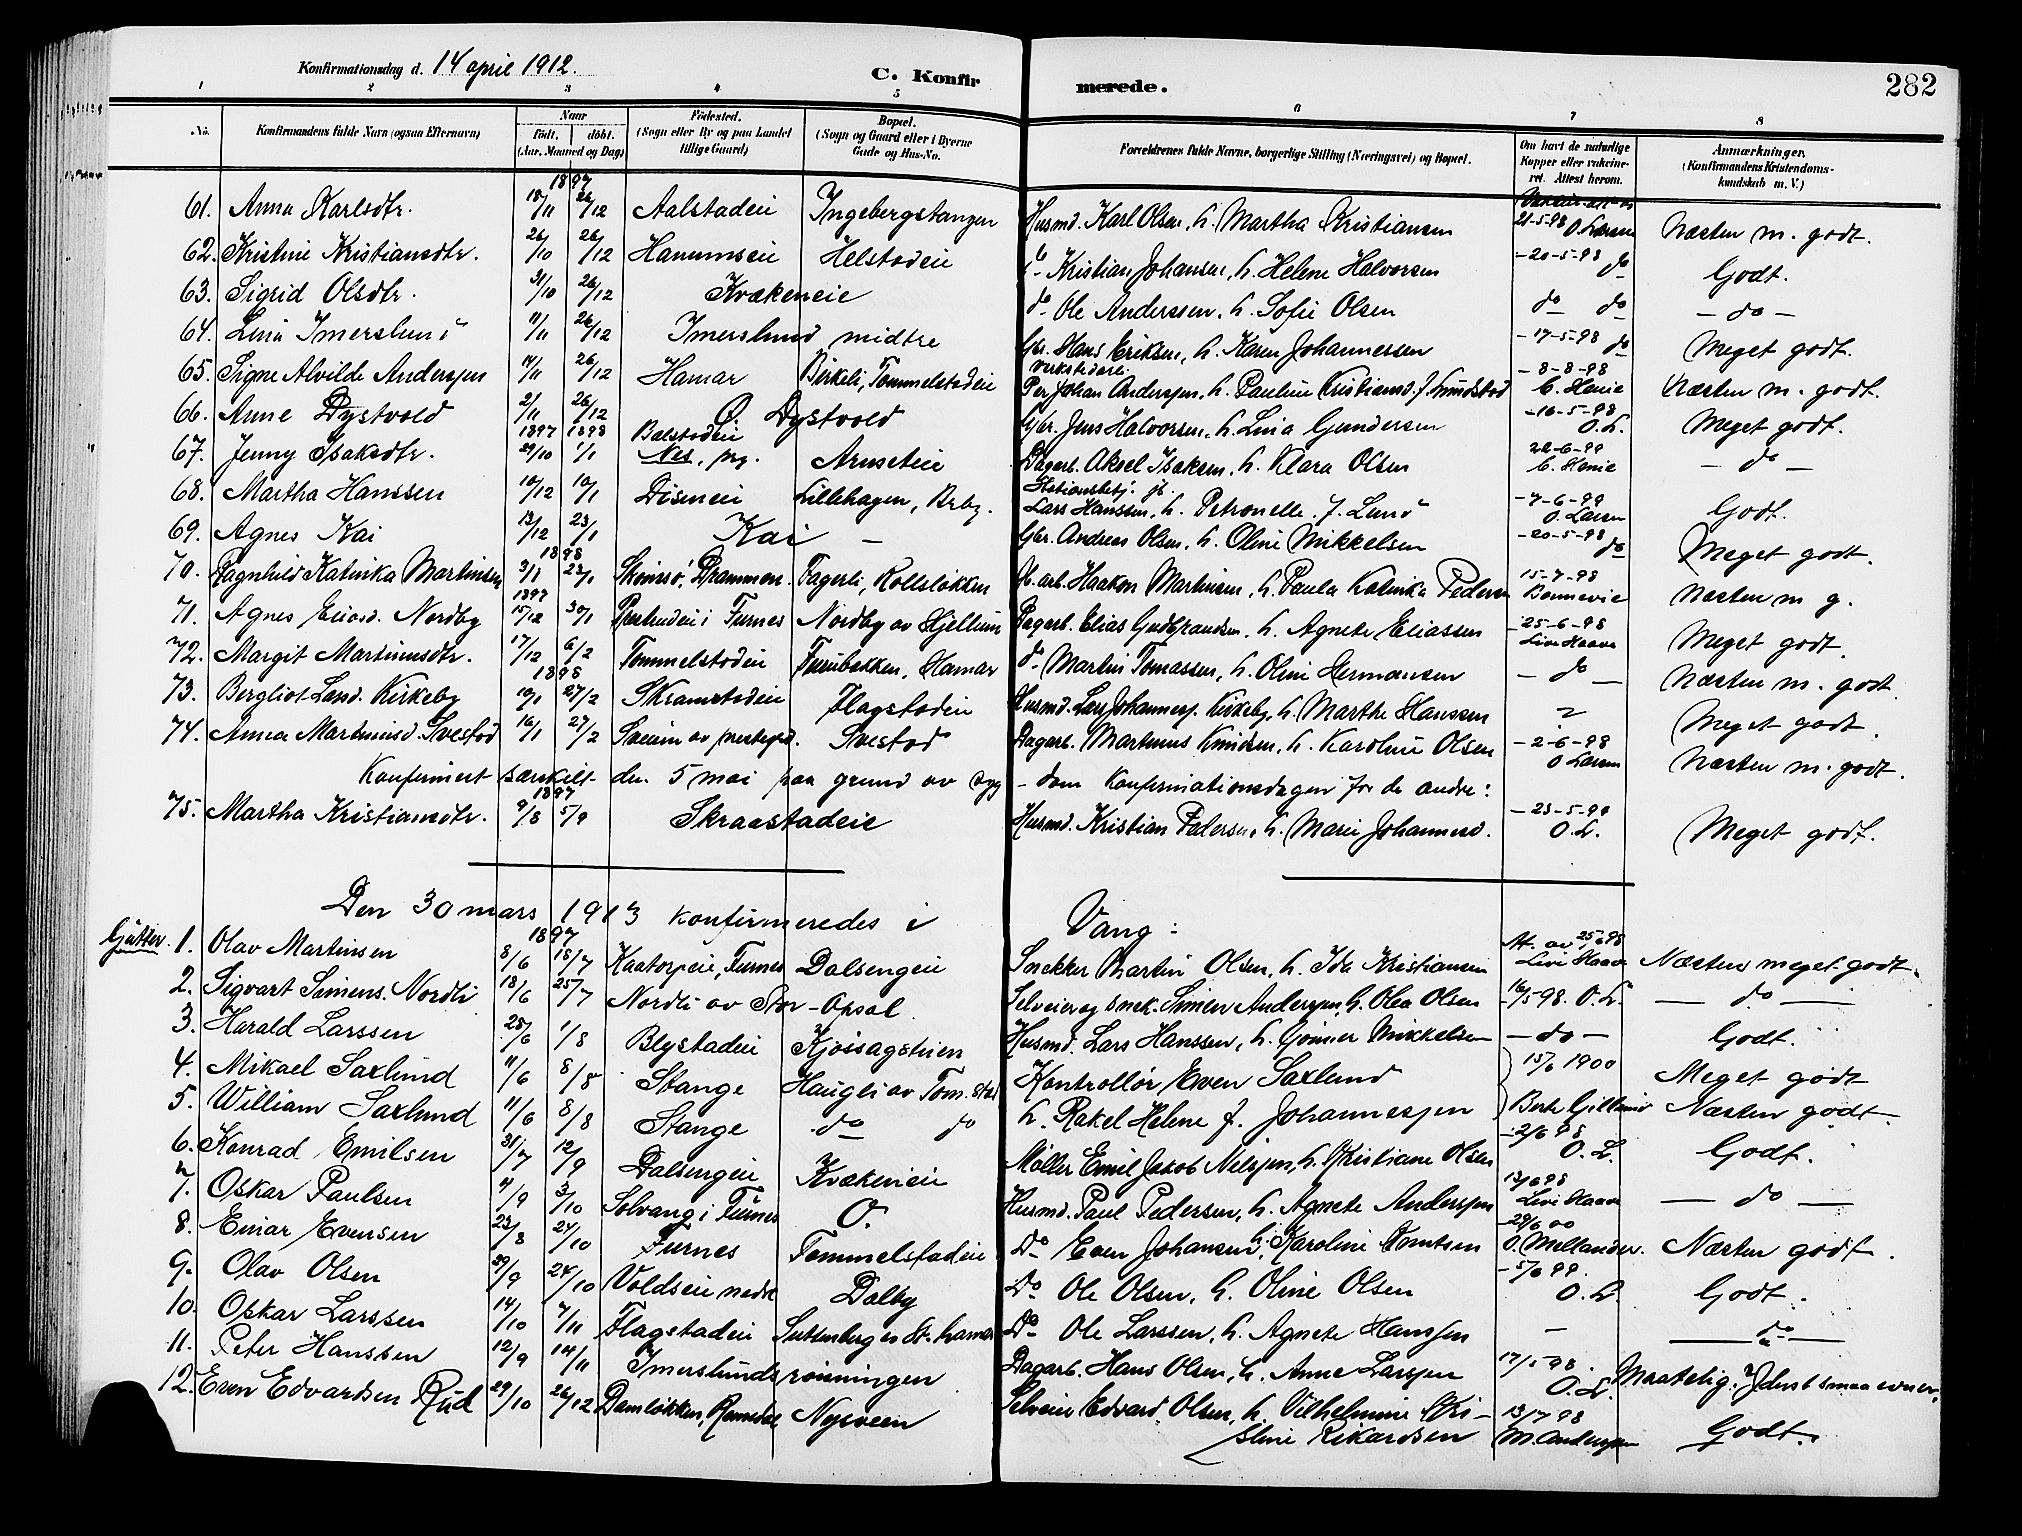 Konfirmationsdag d. 14 april 1912.
C. Konfirmerede.
282
1 2 3 4 5 6 7 8
No. Konfirmandens fulde Navn (ogsaa Efternavn) Naar født. døbt. (Aar, Maaned og Dag) Födested. (Sogn eller By og paa Landet tillige Gaard) Bopæl. (Sogn og Gaard eller i Byerne Gade og Hus-No. Forældrenes fulde Navne, borgerlige Stilling (Næringsvei) og Bopæl. Om havt de naturlige Kopper eller vakcineret. Attest herom. Anmærkninger. (Konfirmandens Kristendomskundskab m. V.)
1897
61. Anna Karlsdtr. 18/11 26/12 Aalstadeie Ingebergstangen Husmd. Karl Olsen, h. Martha Kristiansen 21-5-98 O. Larsen Næsten m. godt.
62. Kristine Kristiansdtr. 26/10 26/12 Hanumseie Helstadeie do Kristian Johansen, h. Helene Halvorsen -20-5-98 do Godt.
63. Sigrid Olsdtr. 31/10 26/12 Kvækeneie do Ole Anderssen, h. Sofie Olsen do do - do -
64. Lina Imerslund 11/11 26/12 Imerslund midtre Gbr. Hans Eriksen, h. Karen Johannessen -17-5-98 do Meget godt.
65. Signe Alvilde Anderssen 14/11 26/12 Hamar Birkeli, Tommelstadeie Verkstedarb. Per Johan Anderssen, h. Pauline Kristiansd. f. Lundstad -8-8-98 C. Henie Næsten m. godt.
66. Anne Dystvold 2/11 26/12 Ø. Dystvold Gbr. Jens Halvorsen, h. Lina Gundersen -16-5-98 O. L. Meget godt.
1897 1898
67. Jenny Isaksdtr. 29/10 1/1 Balstadeie Nes, prg. Arnseteie Dagarb. Aksel Isaksen, h. Klara Olsen 22-6-99 C. Henie - do -
68. Martha Hanssen 10/12 10/1 Diseneie Lillehagen, Brbg. Stationsbetj. jb. Lars Hanssen, h. Petronelle f. Lund -7-6-99 O. Larsen Godt.
69. Agnes Kai 13/12 23/1 Kai - Gbr. Andreas Olsen, h. Oline Mikkelsen -20-5-98 do Meget godt.
1898
70. Ragnhild Katinka Martinsen 3/1 23/1 Drammen. Fagerli, Kollsløkken Haakon Martinsen, h. Paula Katinka Pedersen 15-7-98 Bonnevie Næsten m g.
1897
71. Agnes Eliasd. Nordby 15/12 30/1 Presterudeie i Furnes Nordby av Hjellum Dagarb. Elias Gudbrandsen, h. Agnete Eliassen -25-6-98 Livi Haave Meget godt.
72. Margit Martinusdtr. 17/12 6/2 Tommelstadeie Furubakken, Hamar do Martin Tomassen, h. Oline Hermansen - do - Næsten m. godt
1898
73. Bergliot Larsd. Kirkeby 10/1 27/2 Skramstadeie Flagstadeie Husmd. Lars Johanness. Kirkeby, h. Marthe Hanssen ? Meget godt.
74. Anna Martinusd. Svestad 16/1 27/2 av prestegrd. Svestad Dagarb. Martinus Knudsen, h. Karoline Olsen -2-6-98 O Larsen Næsten m. godt.
Konfirmert særskilt den 5 mai paa grund av syg- dom konfirmationsdagen for de andre:
1897
75. Martha Kristiansdtr. 9/8 5/9 Skraastadeie Husmd. Kristian Pedersen, h. Marie Johannesd. -23-5-99 O. L. Meget godt.
Den 30 mars 1913 konfirmeredes i Vang:
1897
Gutter. 1. Olav Martinsen 8/6 18/7 Kaatorpeie, Furnes Dalsengeie Snekker Martin Olsen, h. Ida Kristiansen At. av 25/6 98 Livi Haave Næsten meget godt.
2. Sigvart Simens. Nordli 18/6 25/7 Nordli av Stor-Opsal. Selveier og snek. Simen Anderssen, h. Olea Olsen 16/5 98. O. L. - do -
3. Harald Larssen 28/6 1/8 Blystadeie Kjossagstuen Husmd. Lars Hanssen, h. Gunner Mikkelsen - do - Godt.
4. Mikael Saxlund 11/6 8/8 Stange Haugli av Tom. stad Kontrollør Even Saxlund 15/6 1900 Meget godt
5. William Saxlund 11/6 8/8 Stange do do h. Rakel Helene f. Johannessen Næsten godt.
6. Konrad Emilsen 31/7 12/9 Dalsengeie Kvækeneie Møller Emil Jakob Nilssen, h. Kristiane Olsen -2/6 98 O. L. Godt.
7. Oskar Paulsen 4/9 3/10 Solvang i Furnes O. Husmd. Paul Pedersen, h. Agnete Anderssen 13/6 98 Livi Haave - do -
8. Einar Evensen 23/8 24/10 Furnes Tommelstadeie Do Even Johansen, h. Karoline Knutsen 29/6 00 O. Mellander. Næsten godt.
9. Olav Olsen 29/9 24/10 Voldseie nedre Dalby Do Ole Olsen, h. Oline Olsen -5/6 99. O. L. Godt.
10. Oskar Larssen 14/10 7/11 Flagstadeie Do Ole Larssen, h. Agnete Hanssen - - do -
11. Peter Hanssen 12/9 14/11 Imerslundsrønningen Dagarb. Hans Olsen, h. Anne Larssen 17/5 98. O. L. Maatelig. smaa evner.
12. Even Edvardsen Rud 29/10 26/12 Damløkken, Romedal Nysveen Selveier Edvard Olsen, h. Vilhelmine Kristine Rikardsen 13/7 98 M. Anderssen Godt.